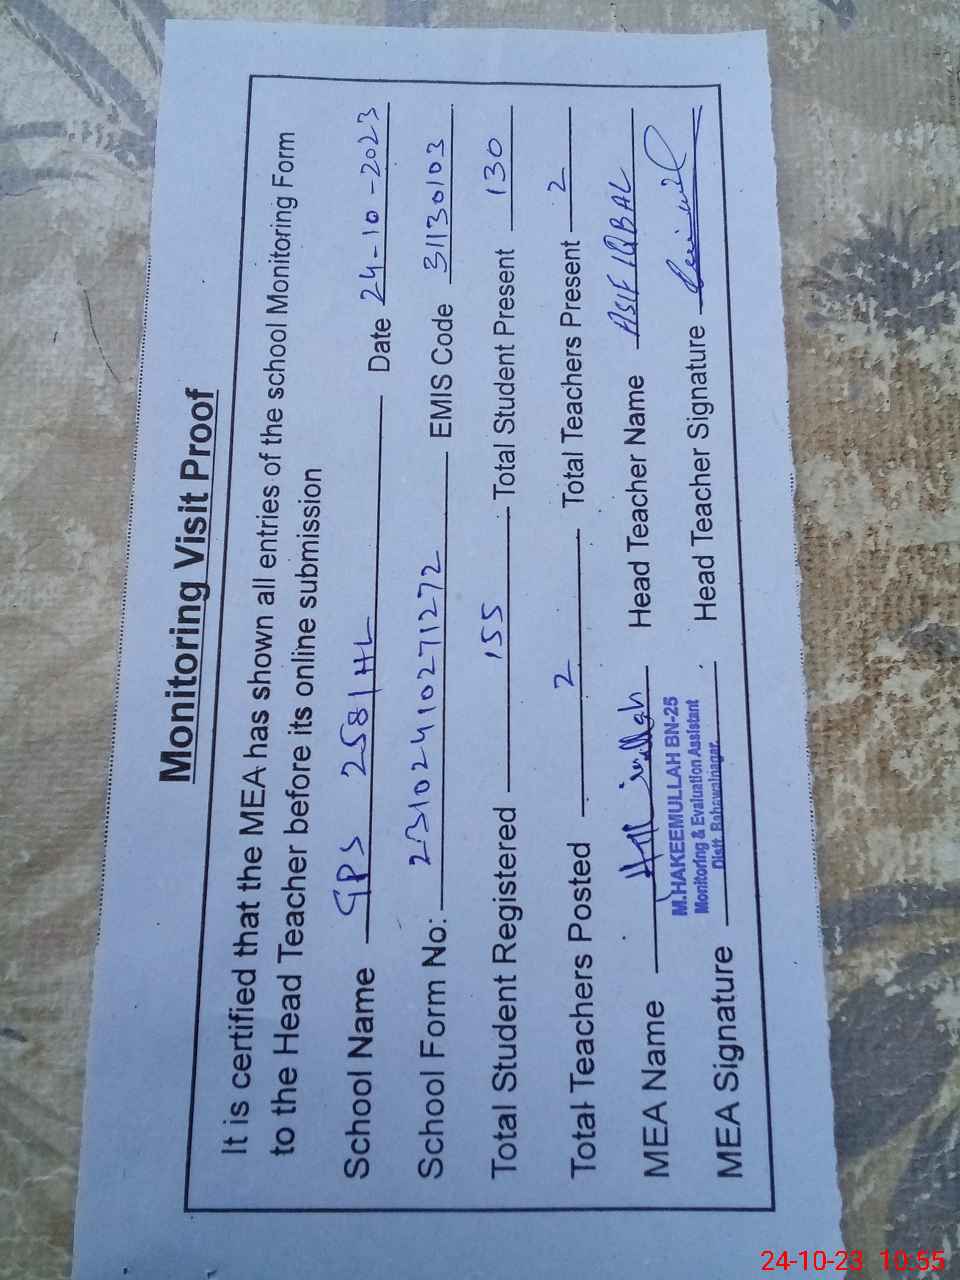 Monitoring Visit Proof
It is certified that the MEA has shown all entries of the school Monitoring Form
to the Head Teacher before its online submission
School Name GPS 258/HL Date 24-10-2023
School Form No: 23102410271272 EMIS Code 31130103
Total Student Registered 155 Total Student Present 130
Total Teachers Posted 2 Total Teachers Present 2
MEA Name Head Teacher Name ASIF IQBAL
M.HAKEEMULLAH BN-25
Monitoring & Evaluation Assistant
Distt. Bahawalnagar.
MEA Signature Head Teacher Signature
24-10-23 10:55